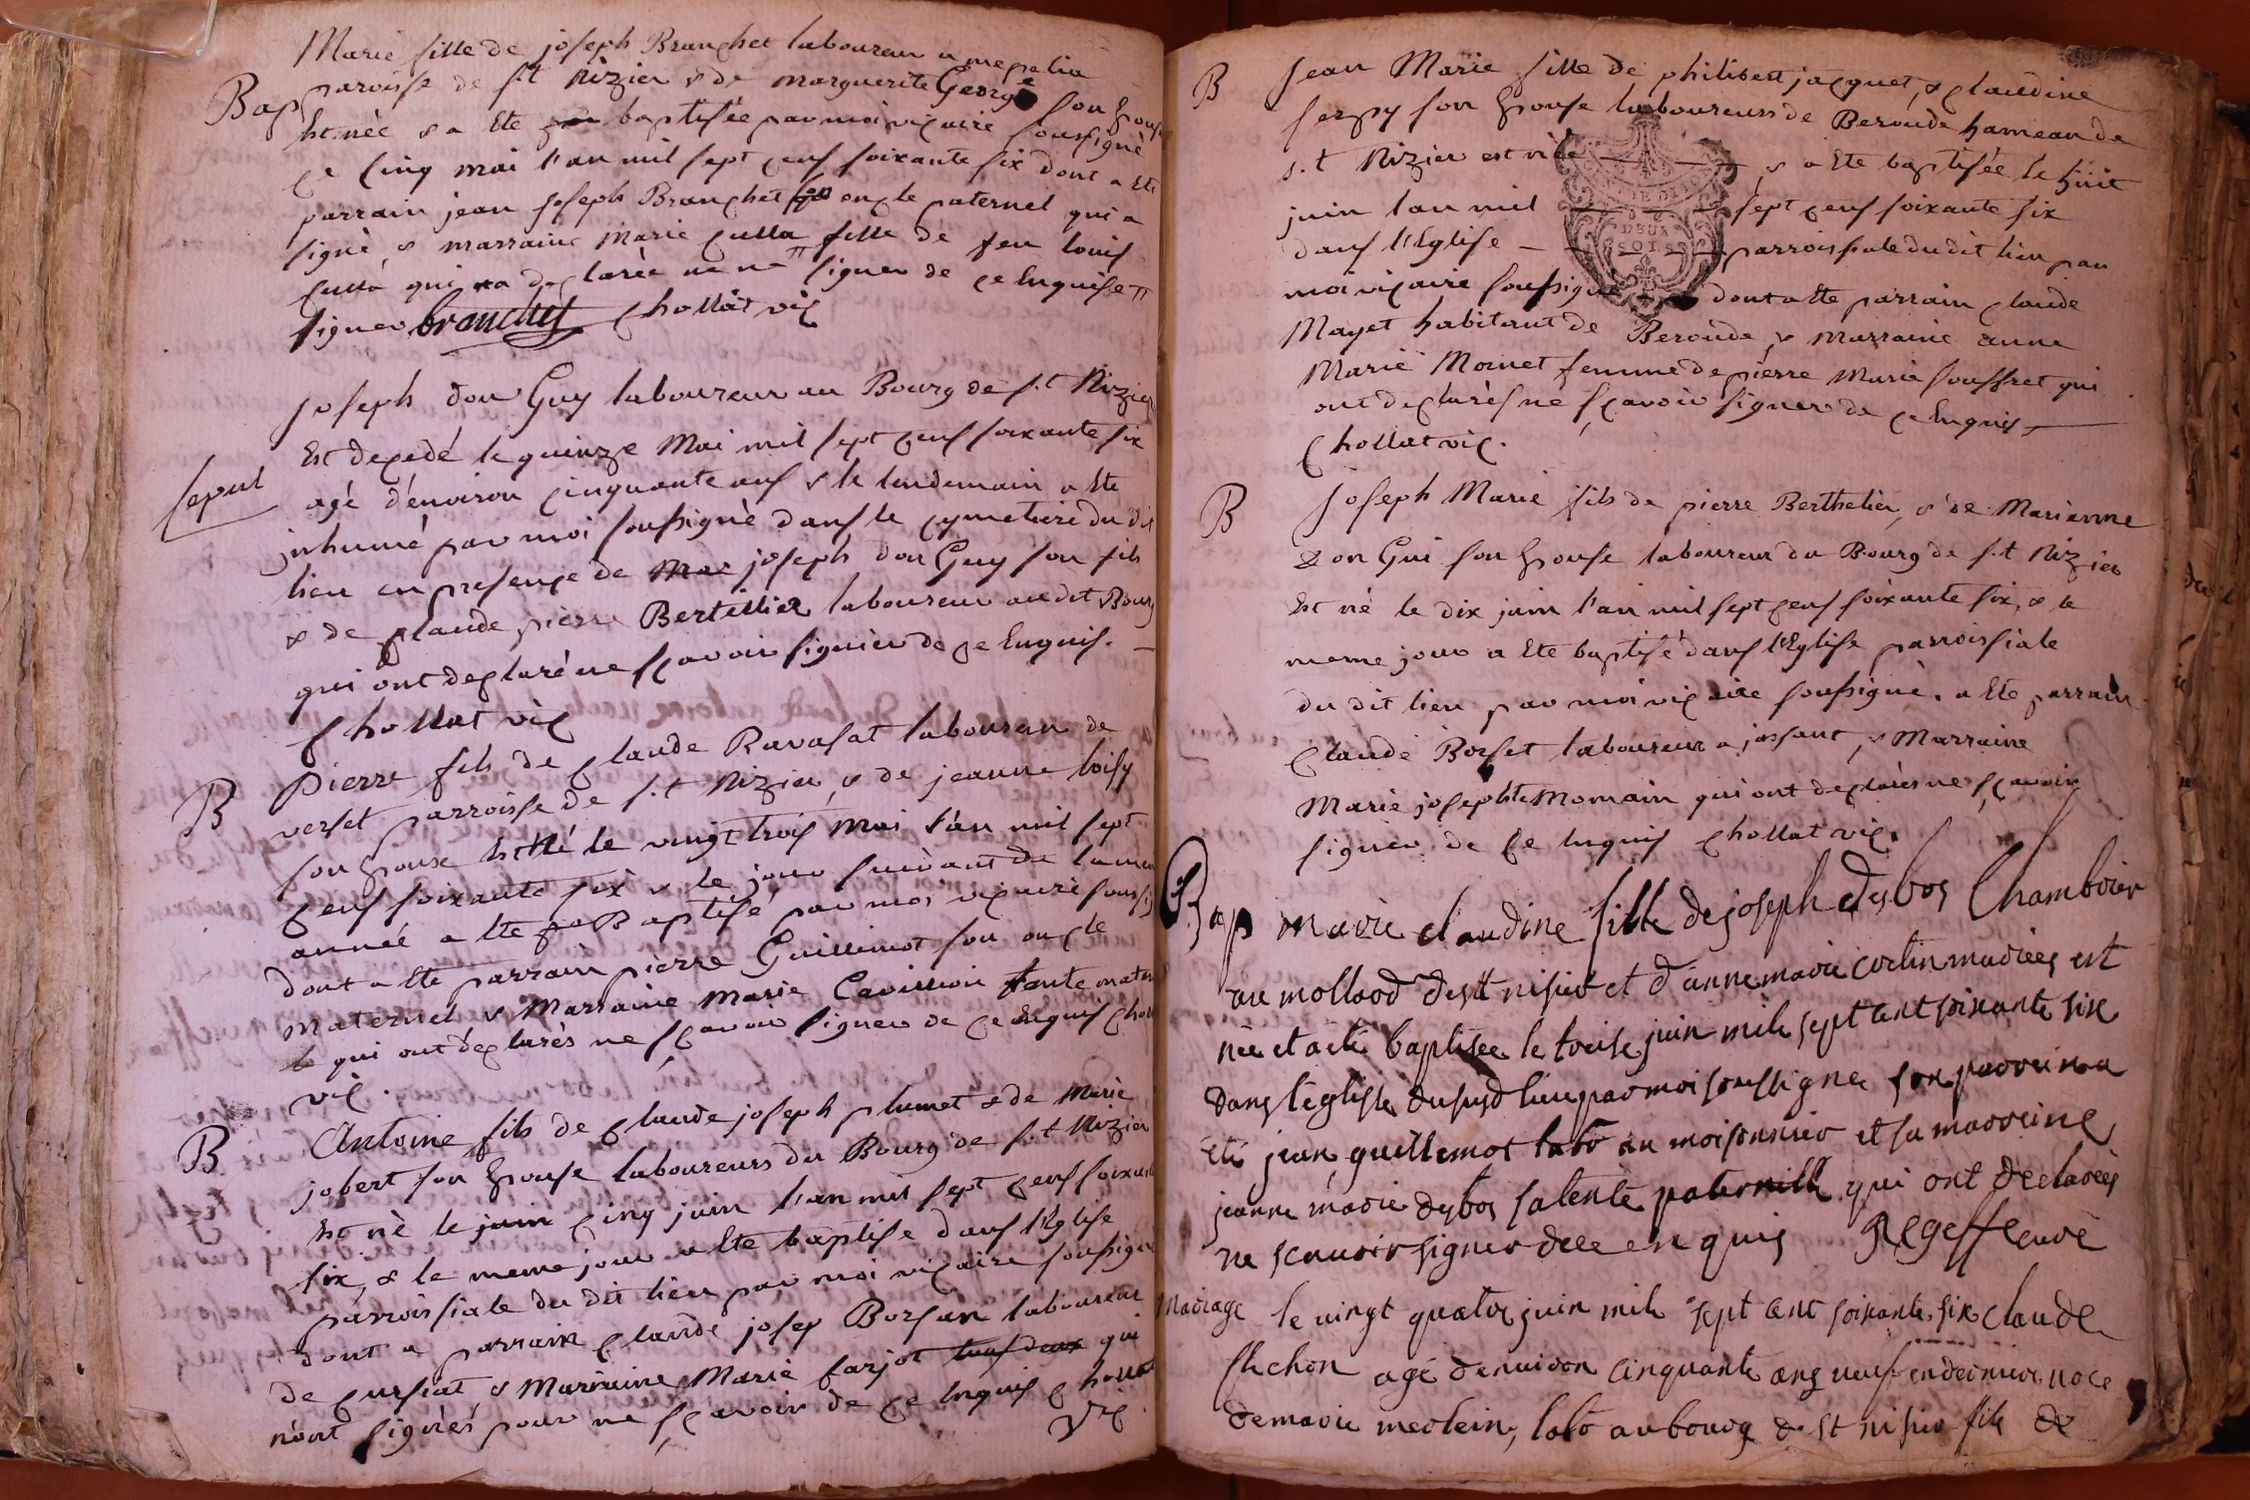 Marie fille de joseph Branchet laboureur a mepelia
Bap parroisse de s.t Nizier & de marguerite George son Epouse
Est née & a Ete baptisée par moi vicaire soussigné
ce cinq mai l'an mil sept cens soixante six dont a Ete
parrain jean joseph Branchet oncle paternel qui a
signé & marraine Marie Cutta fille de feu louis
Cutta qui a declarée ne signer de ce Enquise
signer branchet Chollat vic
joseph don Guy laboureur au Bourg de s.t Nizier
Est decedé le quinze Mai mil sept cens soixante six
Sepul agé d'environ cinquante ans & le lendemain a Ete
inhumé par moi soussigné dans le cymetiere du dit
lieu en presence de joseph don Guy son fils
& de claude pierre Bertillier laboureur audit Bourg
qui ont declaré ne scavoir signer de ce Enquis.
Chollat vic
B Pierre fils de claude Ravasat laboureur de
verset parroisse de s.t Nizier, & de jeanne loisy
son Epouse Est Né le vingt trois Mai l'an mil sept
cens soixante six & le jour suivant de la meme
année a Ete Baptisé par moi vicaire soussigné
dont a Ete parrain pierre Guillimot son oncle
maternel & Marraine Marie tante mater
qui ont declarés ne scavoir signer de ce Enquis Choll
vic.
B Antoine fils de claude joseph plumet & de Marie
jobert son Epouse laboureurs du Bourg de s.t Nizier
Est né le juin cinq juin l'an mil sept cens soixante
six, & le meme jour a Ete baptise dans l'Eglise
parroissiale du dit lieu par moi vicaire soussigné
dont a parrain claude josep Borsan laboureur
de curciat & Marraine Marie farjot tous deux qui
n'ont signés pour ne scavoir de ce Enquis Chollat
vic.
B Jean Marie fille de philibert jacquet, & claudine
serpy son Epouse laboureurs de Beroude hameau de
s.t Nizier est née & a Ete baptisée le huit
juin l'an mil sept cens soixante six
dans l'Eglise parroissiale du dit lieu par
moi vicaire soussigné dont a Ete parrain claude
Mayet habitant de Beroude & marraine anne
Marie Moinet femme de pierre Marie souffret qui
ont declarés ne scavoir signer de ce Enquis
Chollat vic.
B Joseph Marie fils de pierre Berthelier, & de Marianne
Don Gui son Epouse laboureur du Bourg de s.t Nizier
Est né le dix juin l'an mil sept cens soixante six, & le
meme jour a Ete baptisé dans l'Eglise parroissiale
du dit lieu par moi vicaire soussigné. a Ete parrain
Claude Borset laboureur a jassant, & Marraine
Marie josephte Momain qui ont declarés ne scavoir
signer de ce Enquis Chollat vic.
Bap marie claudine fille de joseph desbos Chamboier
au mollard de st nisier et d'anne marie cortin mariees est
née et a eté baptisee le treise juin mile sept cent soixante six
dans l'eglise du susd lieu par moi soussigne son parrein a
eté jean guillemot labo.r au moisonnier et sa marreine
jeanne marie desbos sa tente paternille qui ont declarées
ne scauoir signer de ce enquis Regeffe curé
mariage le uingt quatre juin mile sept cent soixante six claude
flichon agé denuiron cinquante ans ueuf en dernier noce
de marie merlein, labo.r au bourg de st nisier fils de